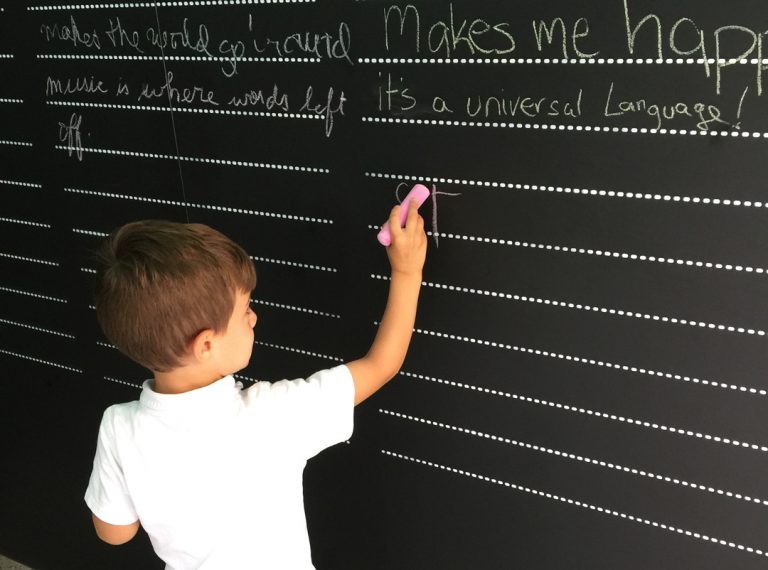 makes the world go 'round
music is where words left
off.
Makes me happ
it's a universal Language!